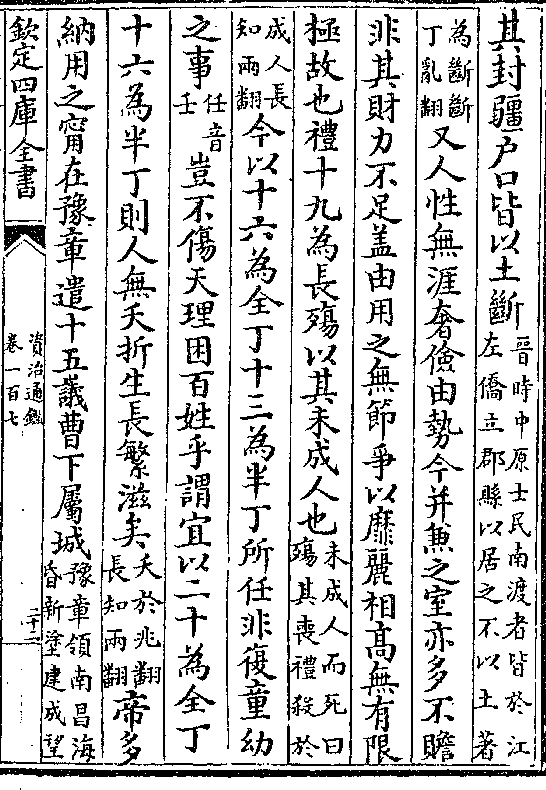 其封疆戶口皆以土斷晉時中原士民南渡者皆於江左僑立郡縣以居之不以土著
為斷斷丁亂翻又人性無涯奢儉由勢今并兼之室亦多不贍
非其財力不足盖由用之無節爭以靡麗相高無有限
極故也禮十九為長殤以其未成人也未成人而死曰殤其喪禮殺於
成人長知兩翻今以十六為全丁十三為半丁所任非復童幼
之事任音壬豈不傷天理困百姓乎謂宜以二十為全丁
十六為半丁則人無夭折生長繁滋矣夭於兆翻長知兩翻帝多
納用之甯在豫章遣十五議曹下屬城豫章領南昌海昏新塗建成望
欽定四庫全書
資治通鑑
卷一百七
二十二